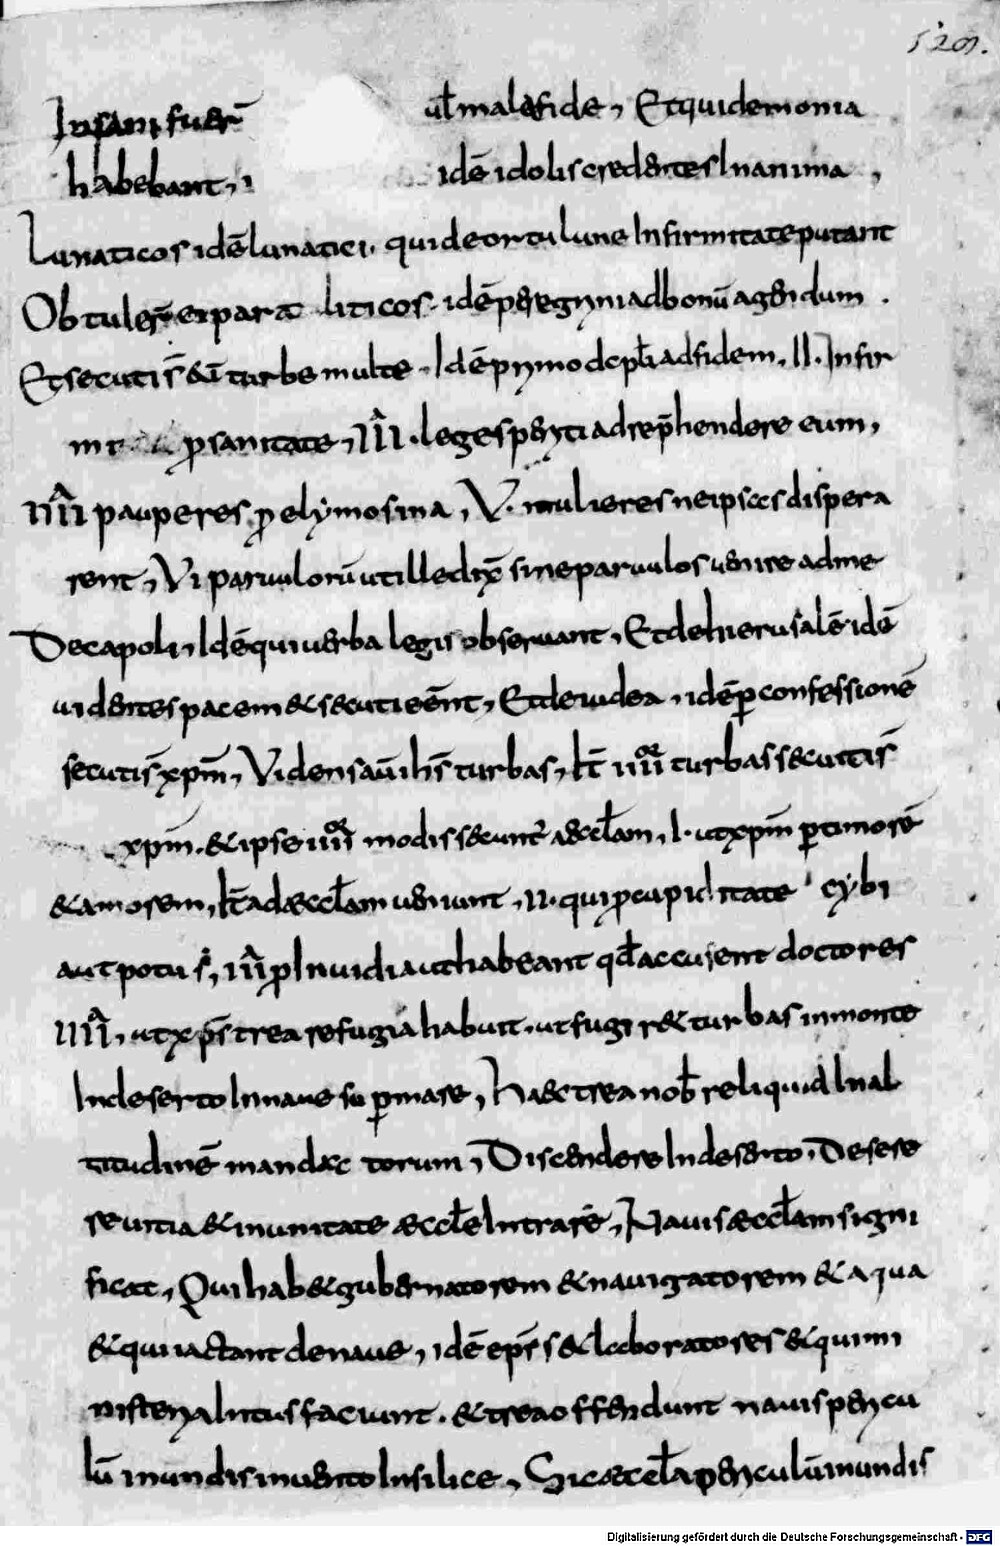 529.
Insani fuer̄ ul̄ male fide, Et qui demonia
habebant, idē idolis credentes Inanima,
Lunaticos idē lunatici. qui de ortu lune Infirmitate putant
Obtuler̄ ei para liticos. idē peregrini ad bonū agendum.
Et secuti s̄ eū turbe multe. Idē primo de ad fidem. II. Infir
mi p sanitate, III. leges periti ad rep̄hendere eum,
IIII pauperes p elymosina, V. mulieres ne ipsas dispera
rent, VI parvulorū ut ille dix̄ sine parvulos venire ad me
Decapoli, Idē qui verba legis observant, Et de hierusalē idē
videntes pacem & secuti eēnt, Et de iudea, idē p confessionē
secuti s̄ xpm̄, Videns aū ihs̄ turbas, turbas secuti s̄
xpm̄. & ipse modis secunt̄ aeccl̄am, I. ut xpm̄ p timorē
& amorem, ad aeccl̄am veniunt, II. qui p cupiditate cybi
aut potus, III p Invidi aut habeant qd̄ accusent doctores
IIII, ut xps̄ trea refugia habuit. ut fugiret turbas in monte
In deserto In nave sup mare, Haec trea nob̄ reliquid In al
titudinē mandatorum, Discendere In deserto, Desere
re vitia & in unitate aeccl̄e Intrarē, Navis aeccl̄am signi
ficat, Qui habet gubernatorem & navigatorem & aqua
& qui iactant de nave, idē eps̄ & laboratores & qui mi
nisteria Intus faciunt. & trea offendunt navis pericu
lū in undis in vento In silice, Sic aecel̄a periculū mundis
Digitalisierung gefördert durch die Deutsche Forschungsgemeinschaft - DFG